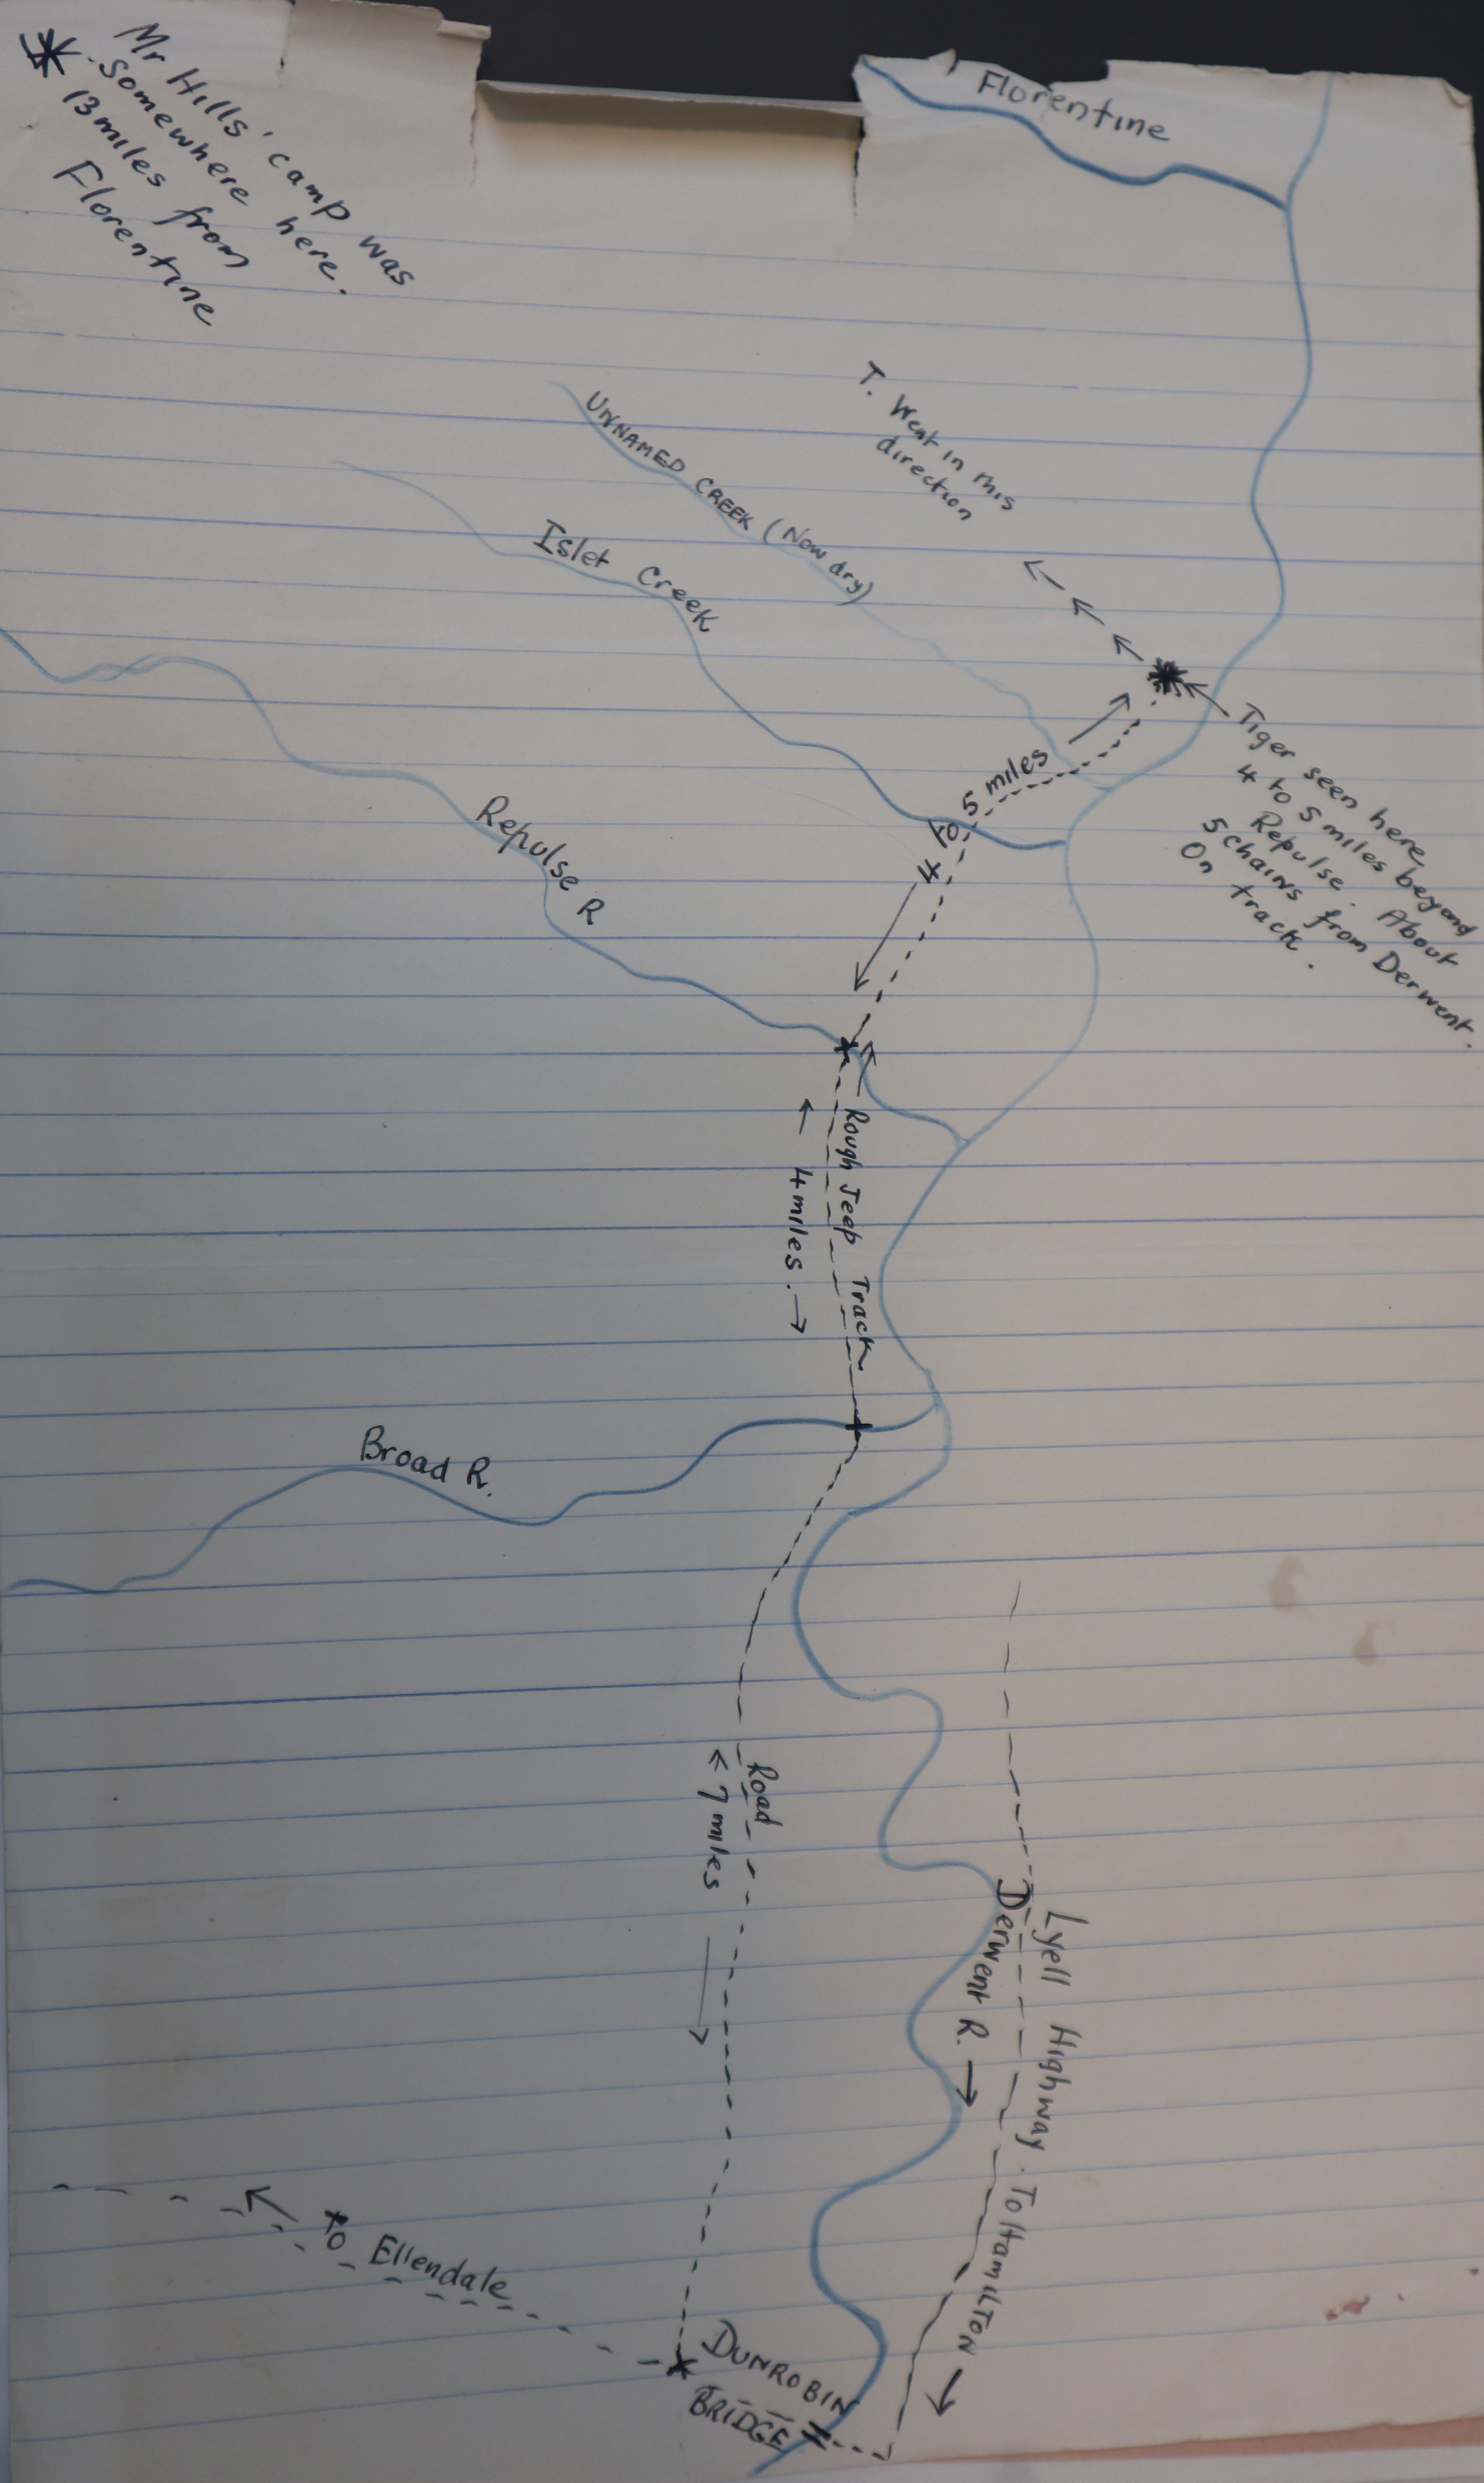 Mr Hills' camp was
Somewhere here.
13 miles from
Florentine
Florentine
T. Went in this
direction
UNNAMED CREEK (Now dry)
Islet Creek
Tiger seen here
4 to 5 miles beyond
Repulse. About
5 chains from Derwent.
On track.
4 to 5 miles
Repulse R
Rough Jeep Track
4 miles.
Broad R.
Road
7 miles
Derwent R.
Lyell Highway. To HamILTON
to Ellendale
DUNROBIN
BRIDGE